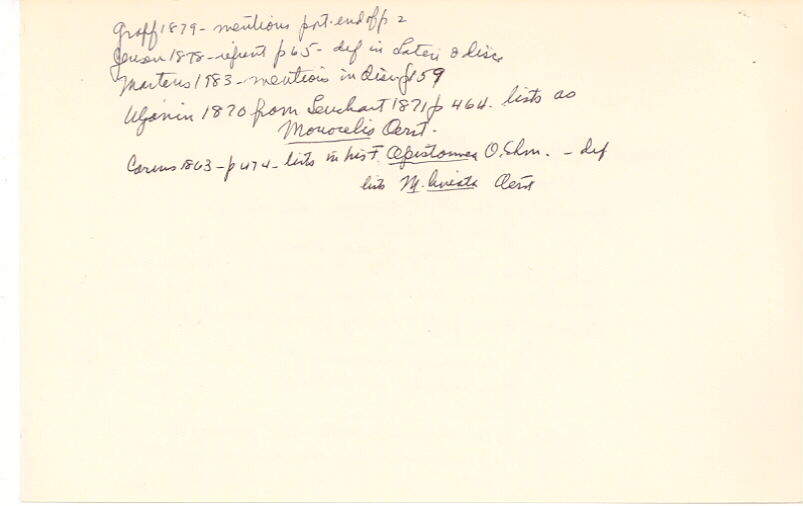 Graff 1879 - mentions prt. end of p 2
Jenson 1878 - reprint p 65 - def in Latin & disc
Martens 1983 - mentions in disc p 159
Uljanin 1870 from Leuckart 1871 p 464. lists as
Monocelis Oerst.
Carus 1863 - p 474 - lists in hist Opistomea O. Schm. - def
lists M. lineata Oerst